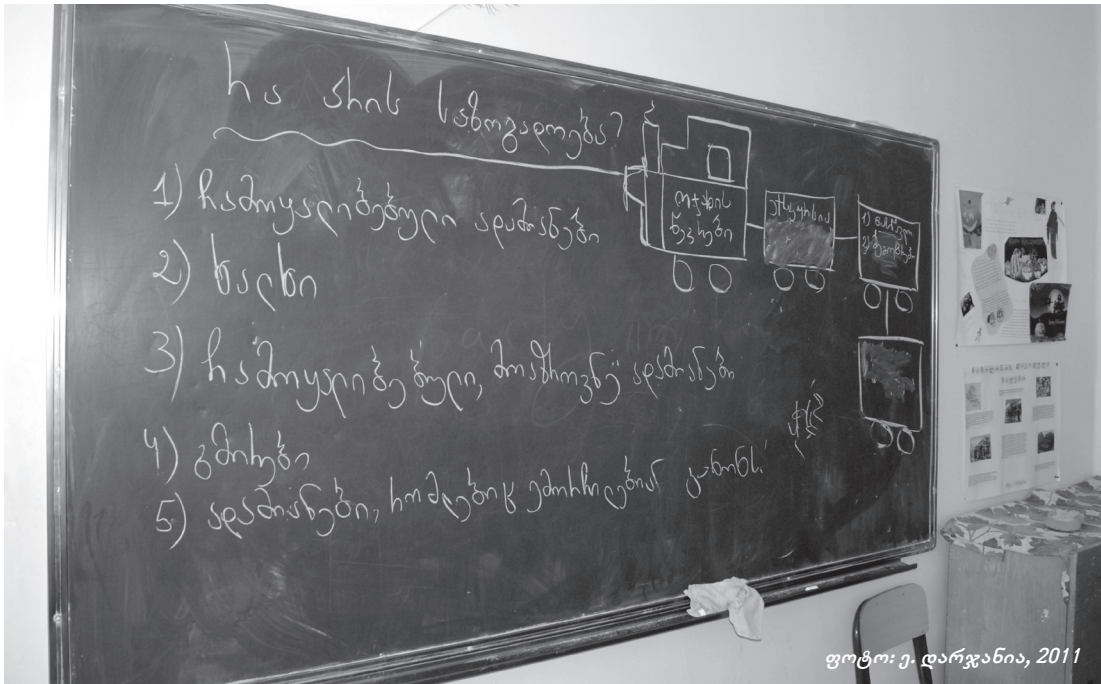 რა არის საზოგადოება?
1) ჩამოყალიბებული ადამიანები
2) ხალხი
3) ჩამოყალიბებული, მოაზროვნე ადამიანები
4) გმირები
5) ადამიანები, რომლებიც ემორჩილებიან კანონს.
ოჯახის
წევრები
ექსკურსია
1)
2)
ფოტო: ე. დარჯანია, 2011